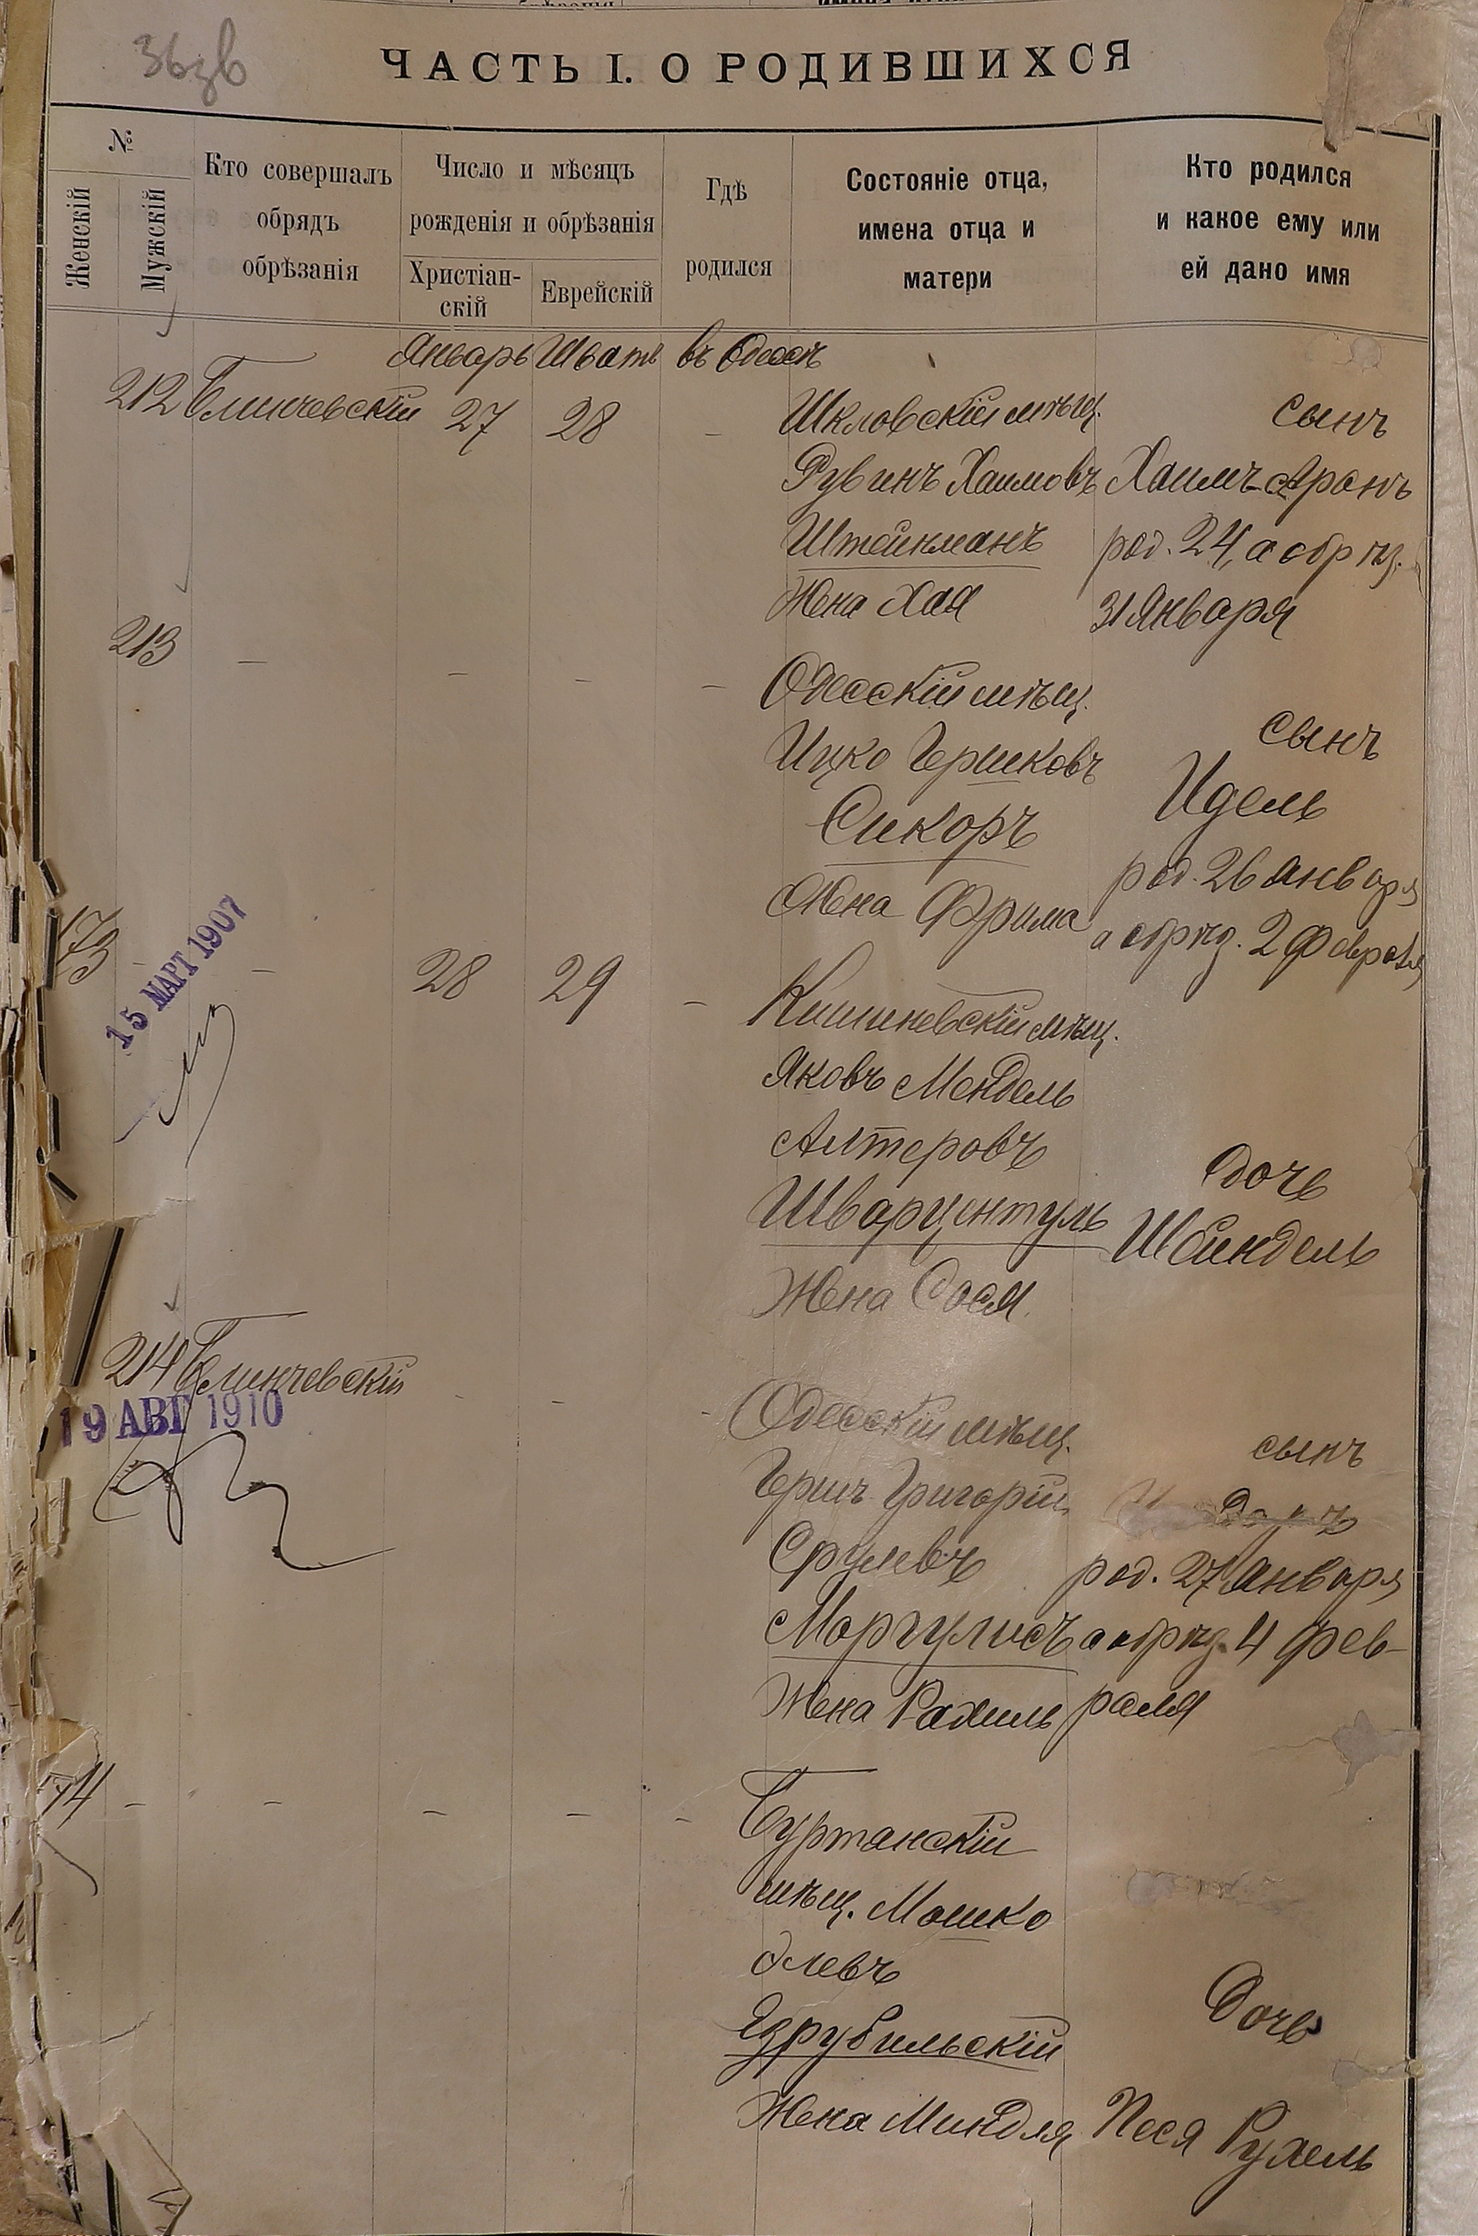 363в
ЧАСТЬ I. О РОДИВШИХСЯ
№
Женскій
Мужскій
Кто совершалъ
обрядъ
обрѣзанія
Число и мѣсяцъ
рожденія и обрѣзанія
Христіан-
скій
Еврейскій
Гдѣ
родился
Состояніе отца,
имена отца и
матери
Кто родился
и какое ему или
ей дано имя
Январь Шватъ въ Одессѣ
212 Блинчевскій 27 28 – Шкловскій мѣщ. сынъ
Рувинъ Хаимовъ Хаимъ-Аронъ
Штейнманъ род. 24, а обрѣз.
Жена Хая 31 Января
213 – – – – Одесскій мѣщ.
Ицко Гершковъ сынъ
Сикоръ Идель
Жена Фрима род. 26 Января
а обрѣз. 2 Февраля
173 – – 28 29 – Кишиневскій мѣщ.
15 МАРТ 1907
Яковъ Мендель
Алтеровъ
дочь
Шварцентуль Шейндель
Жена Сося
214 Блинчевскій – – – Одесскій мѣщ.
19 АВГ 1910
сынъ
Гершъ Григорій
Срулевъ род. 27 Января
Моргулисъ а обрѣз. 4 Фев-
Жена Рахиль раля
174 – – – – – Буртанскій
мѣщ. Мошко
Элевъ
дочь
Ядрубильскій
Жена Миндля Песя Рухель